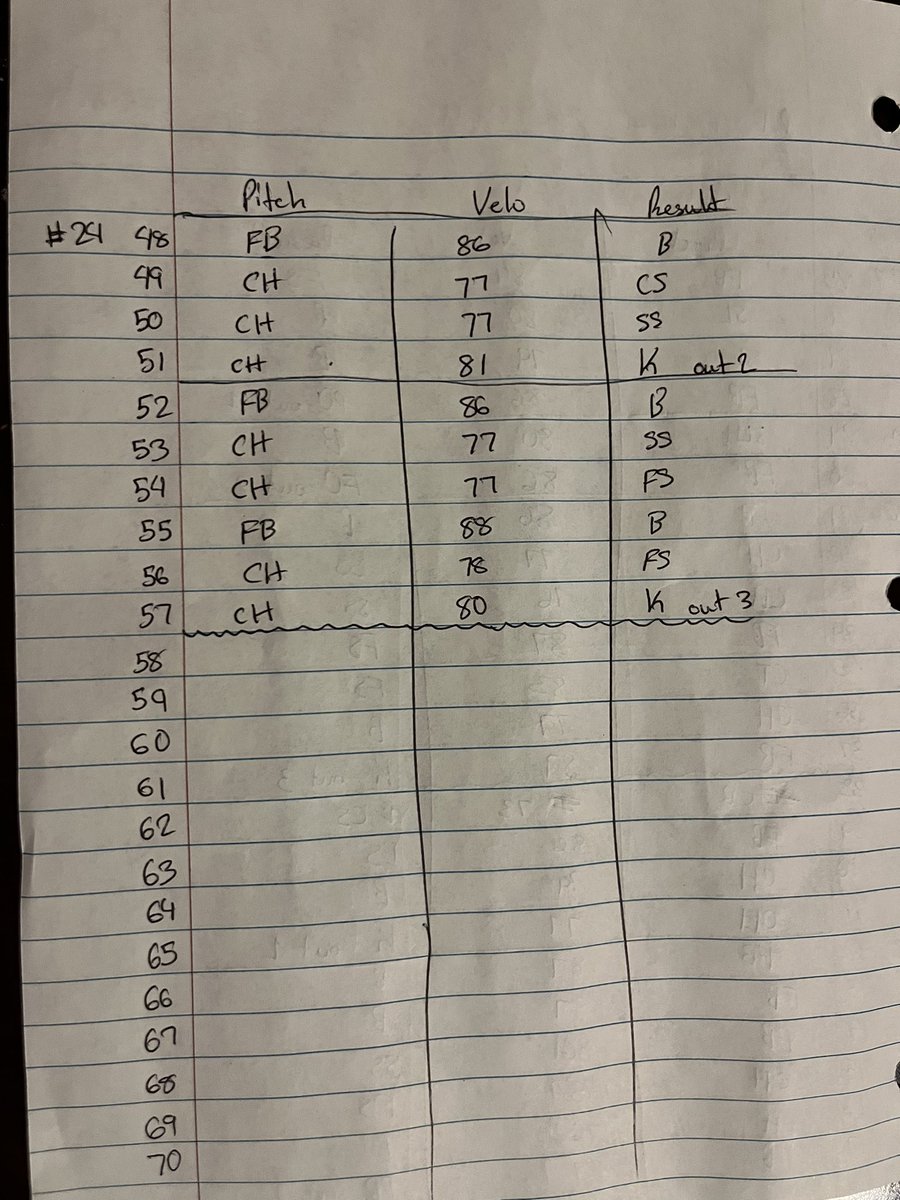 Pitch Velo Result
#24 48 FB 86 B
49 CH 77 CS
50 CH 77 SS
51 CH 81 K out 2
52 FB 86 B
53 CH 77 SS
54 CH 77 FS
55 FB 88 B
56 CH 78 FS
57 CH 80 K out 3
58
59
60
61
62
63
64
65
66
67
68
69
70